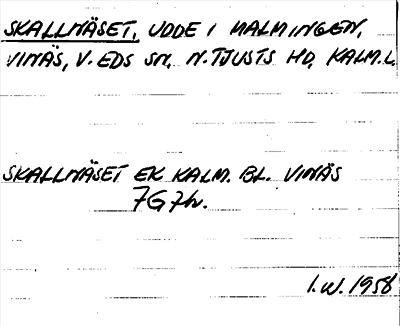 SKALLNÄSET, UDDE I MALMINGEN,
VINÄS, V. EDS SN, N. TJUSTS HD, KALM. L.
SKALLNÄSET EK KALM. BL. VINÄS
7G7h.
I.W. 1958